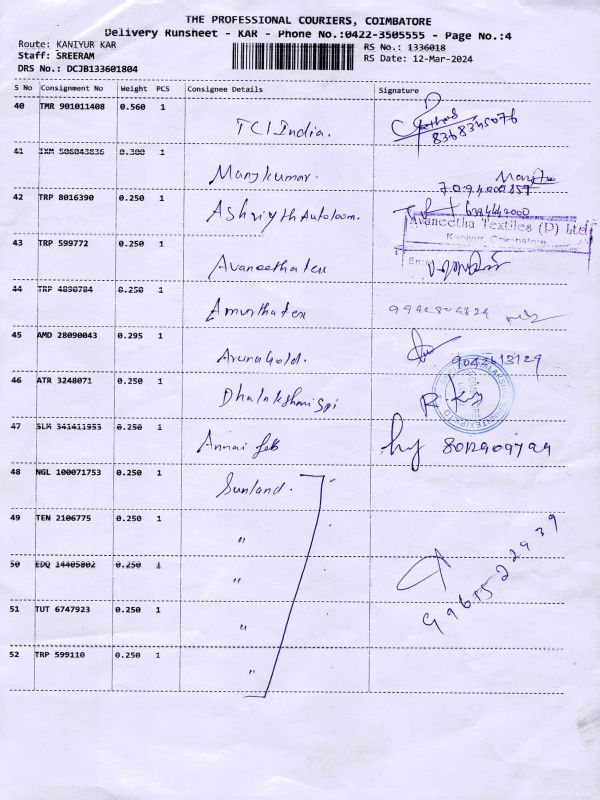 THE PROFESSIONAL COURIERS, COIMBATORE
Delivery Runsheet - KAR - Phone No.:0422-3505555 - Page No.:4
Route: KANIYUR KAR
RS No.: 1336018
Staff: SREERAM
RS Date: 12-Mar-2024
DRS No.: DCJB133601804
S No Consignment No Weight PCS Consignee Details Signature
40 TMR 901011408 0.560 1 TCI India. 8368345076
41 IXM 506043836 0.300 1 Manykumar.
42 TRP 8016390 0.250 1
Avaneetha Textiles (P) Ltd
Kaniyur, Coimbatore
43 TRP 599772 0.250 1 Avaneetha tex
44 TRP 4898784 0.250 1 Amurtha tex
45 AMD 28090043 0.295 1 Aruna Gold. 9042613129
46 ATR 3248071 0.250 1
47 SLM 341411953 0.250 1 Annai
48 NGL 100071753 0.250 1 Sunland.
49 TEN 2106775 0.250 1 "
50 EDQ 14405802 0.250 1 "
9965522939
51 TUT 6747923 0.250 1 "
52 TRP 599110 0.250 1 "